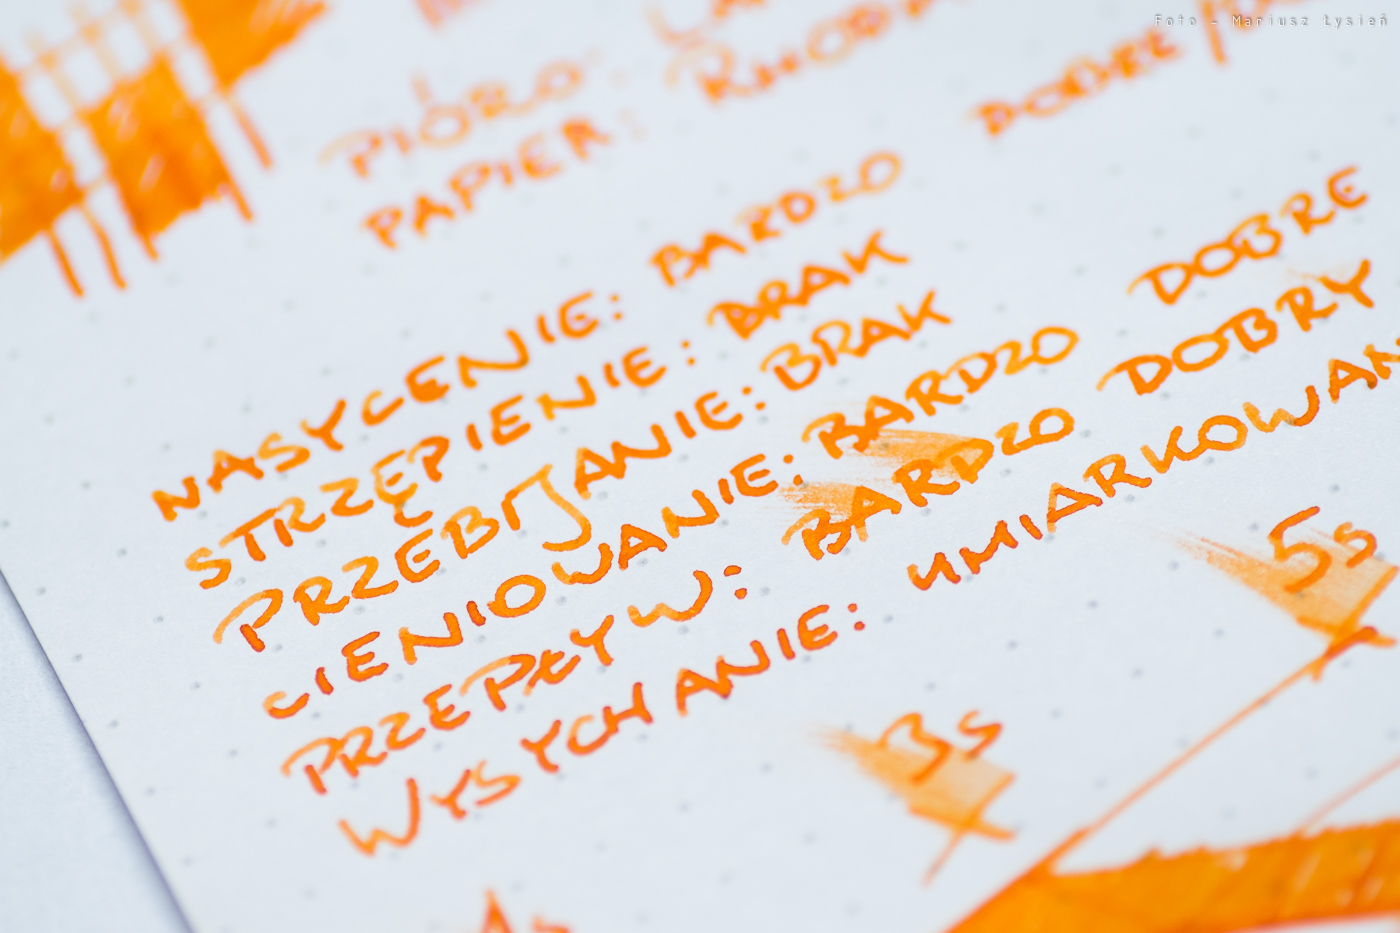 Foto - Mariusz Łysień
PIÓRO:
PAPIER: RHODIA
DOBRE/
NASYCENIE: BARDZO DOBRE
STRZĘPIENIE: BRAK
PRZEBIJANIE: BRAK
CIENIOWANIE: BARDZO DOBRY
PRZEPŁYW: BARDZO
WYSYCHANIE: UMIARKOWAN
5s
3s